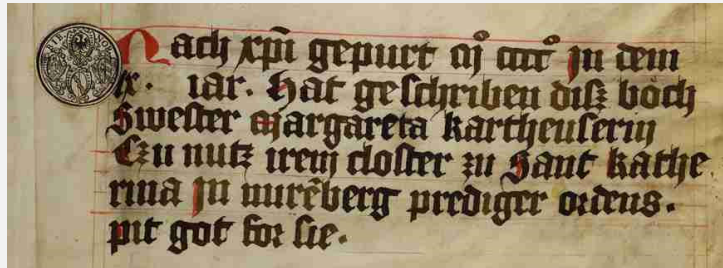 Nach xpi gepurt mº ccccº Jn dem
lx. iar. Hat geschriben disz bůch
Swester Margareta kartheuserin
Czu nutz irem closter zu Sant kathe
rina Jn nurēberg prediger ordens.
pit got for sie.